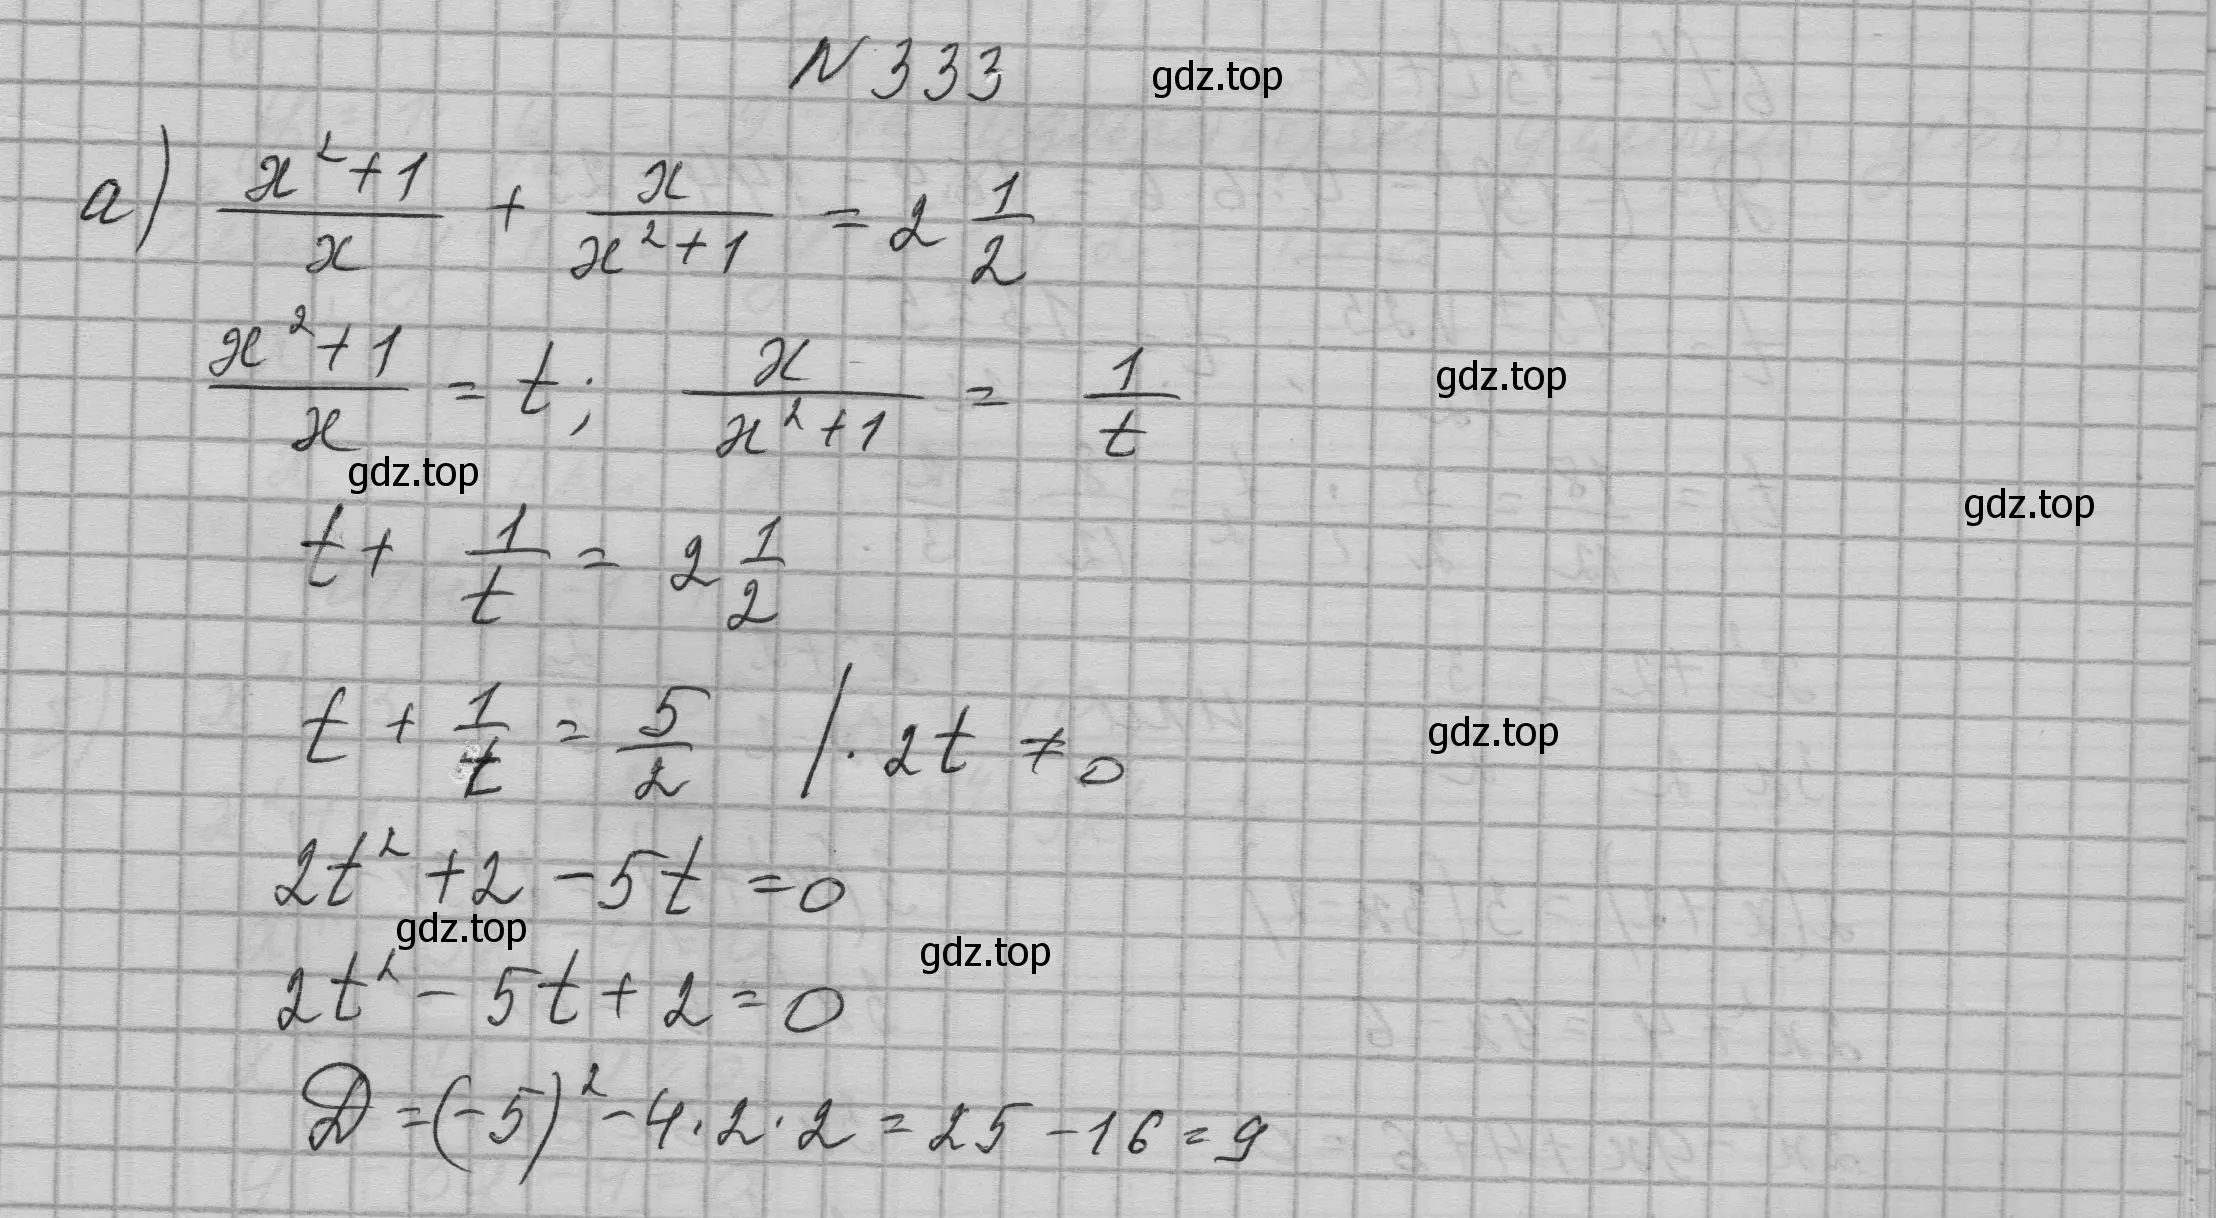 N 333 gdz.top
а) (x² + 1)/x + x/(x² + 1) = 2 1/2
(x² + 1)/x = t; x/(x² + 1) = 1/t gdz.top
gdz.top
gdz.top
t + 1/t = 2 1/2
t + 1/t = 5/2 / · 2t ≠ 0 gdz.top
2t² + 2 - 5t = 0
gdz.top gdz.top
2t² - 5t + 2 = 0
D = (-5)² - 4 · 2 · 2 = 25 - 16 = 9